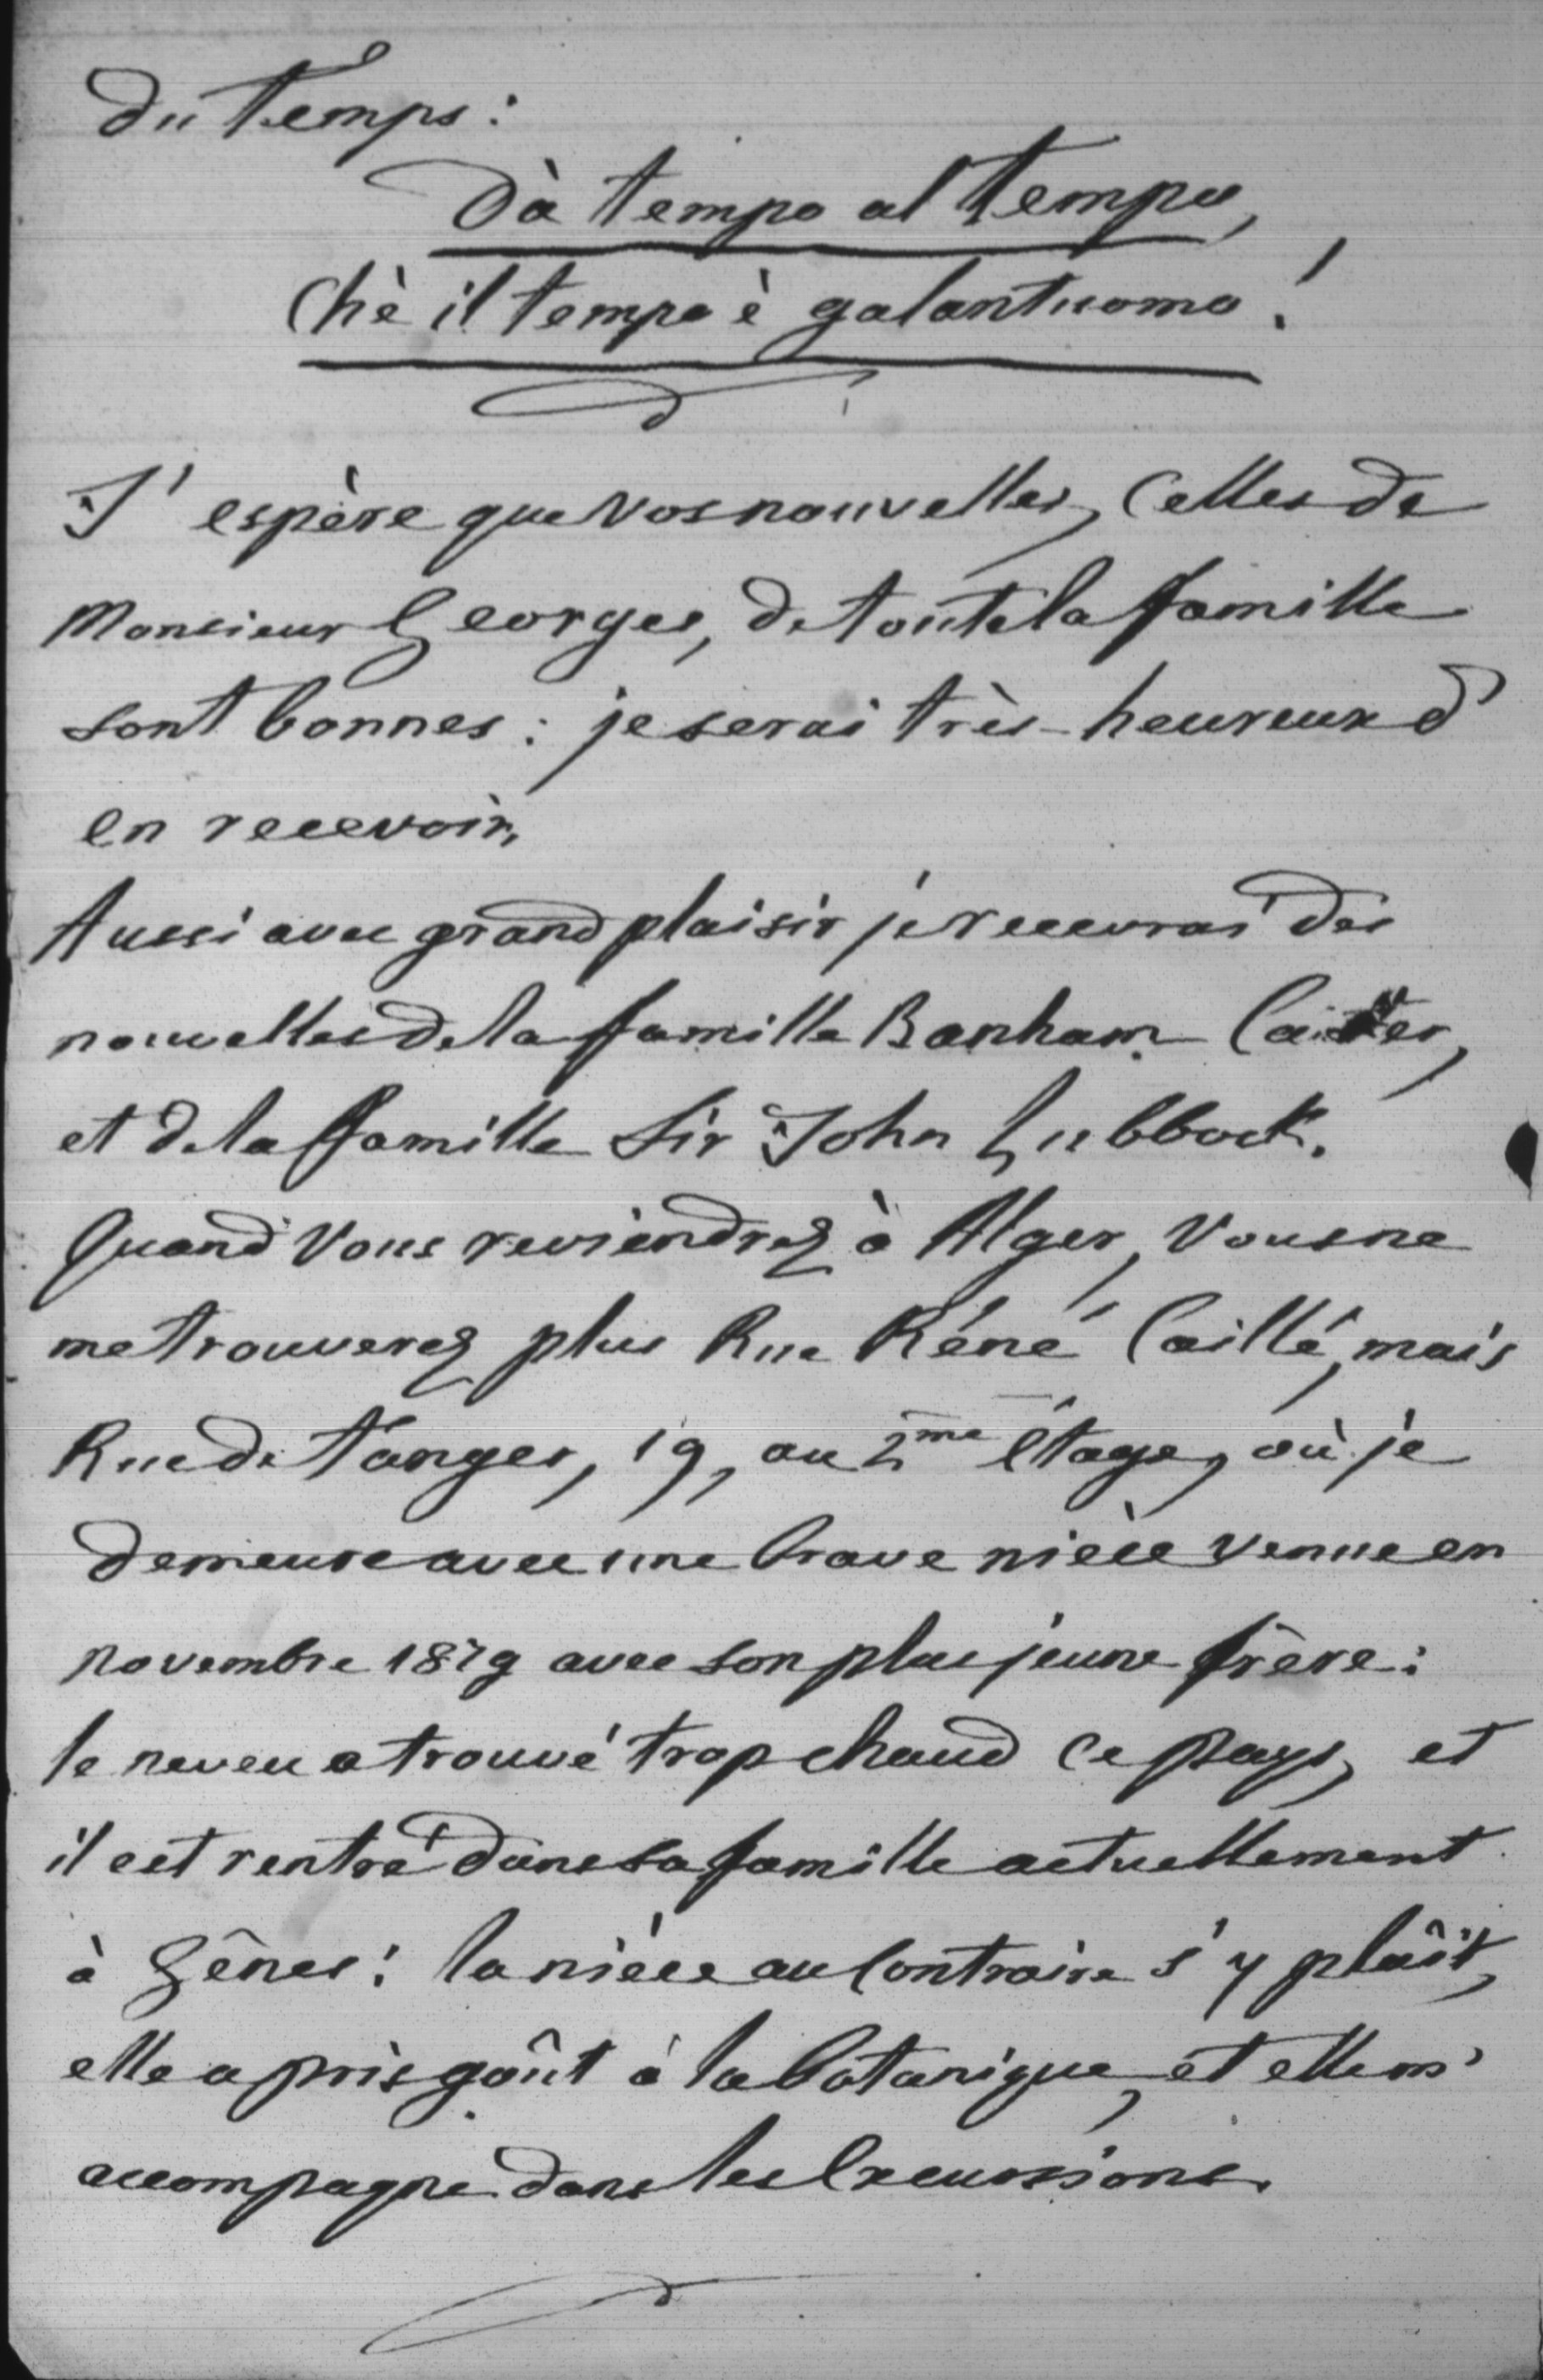 du temps :
Dà tempo al tempo,
Chè il tempo è galantuomo !
J' espère que vos nouvelles, celles de
Monsieur Georges, de toute la famille
sont bonnes : je serai très-heureux d'
en recevoir.
Aussi avec grand plaisir je recevrai des
nouvelles de la famille Banham Carter,
et de la famille Sir John Lubbock.
Quand vous reviendrez à Alger, vous ne
me trouverez plus Rue Réné Caillé, mais
Rue de Tanger, 19, au 2me étage, où je
demeure avec une brave nièce venue en
novembre 1879 avec son plus jeune frère :
le neveu a trouvé trop chaud ce pays, et
il est rentré dans sa famille actuellement
à Gênes : la nièce au contraire s'y plâit,
elle a pris goût à la botanique, et elle m'
accompagne dans les excursions.